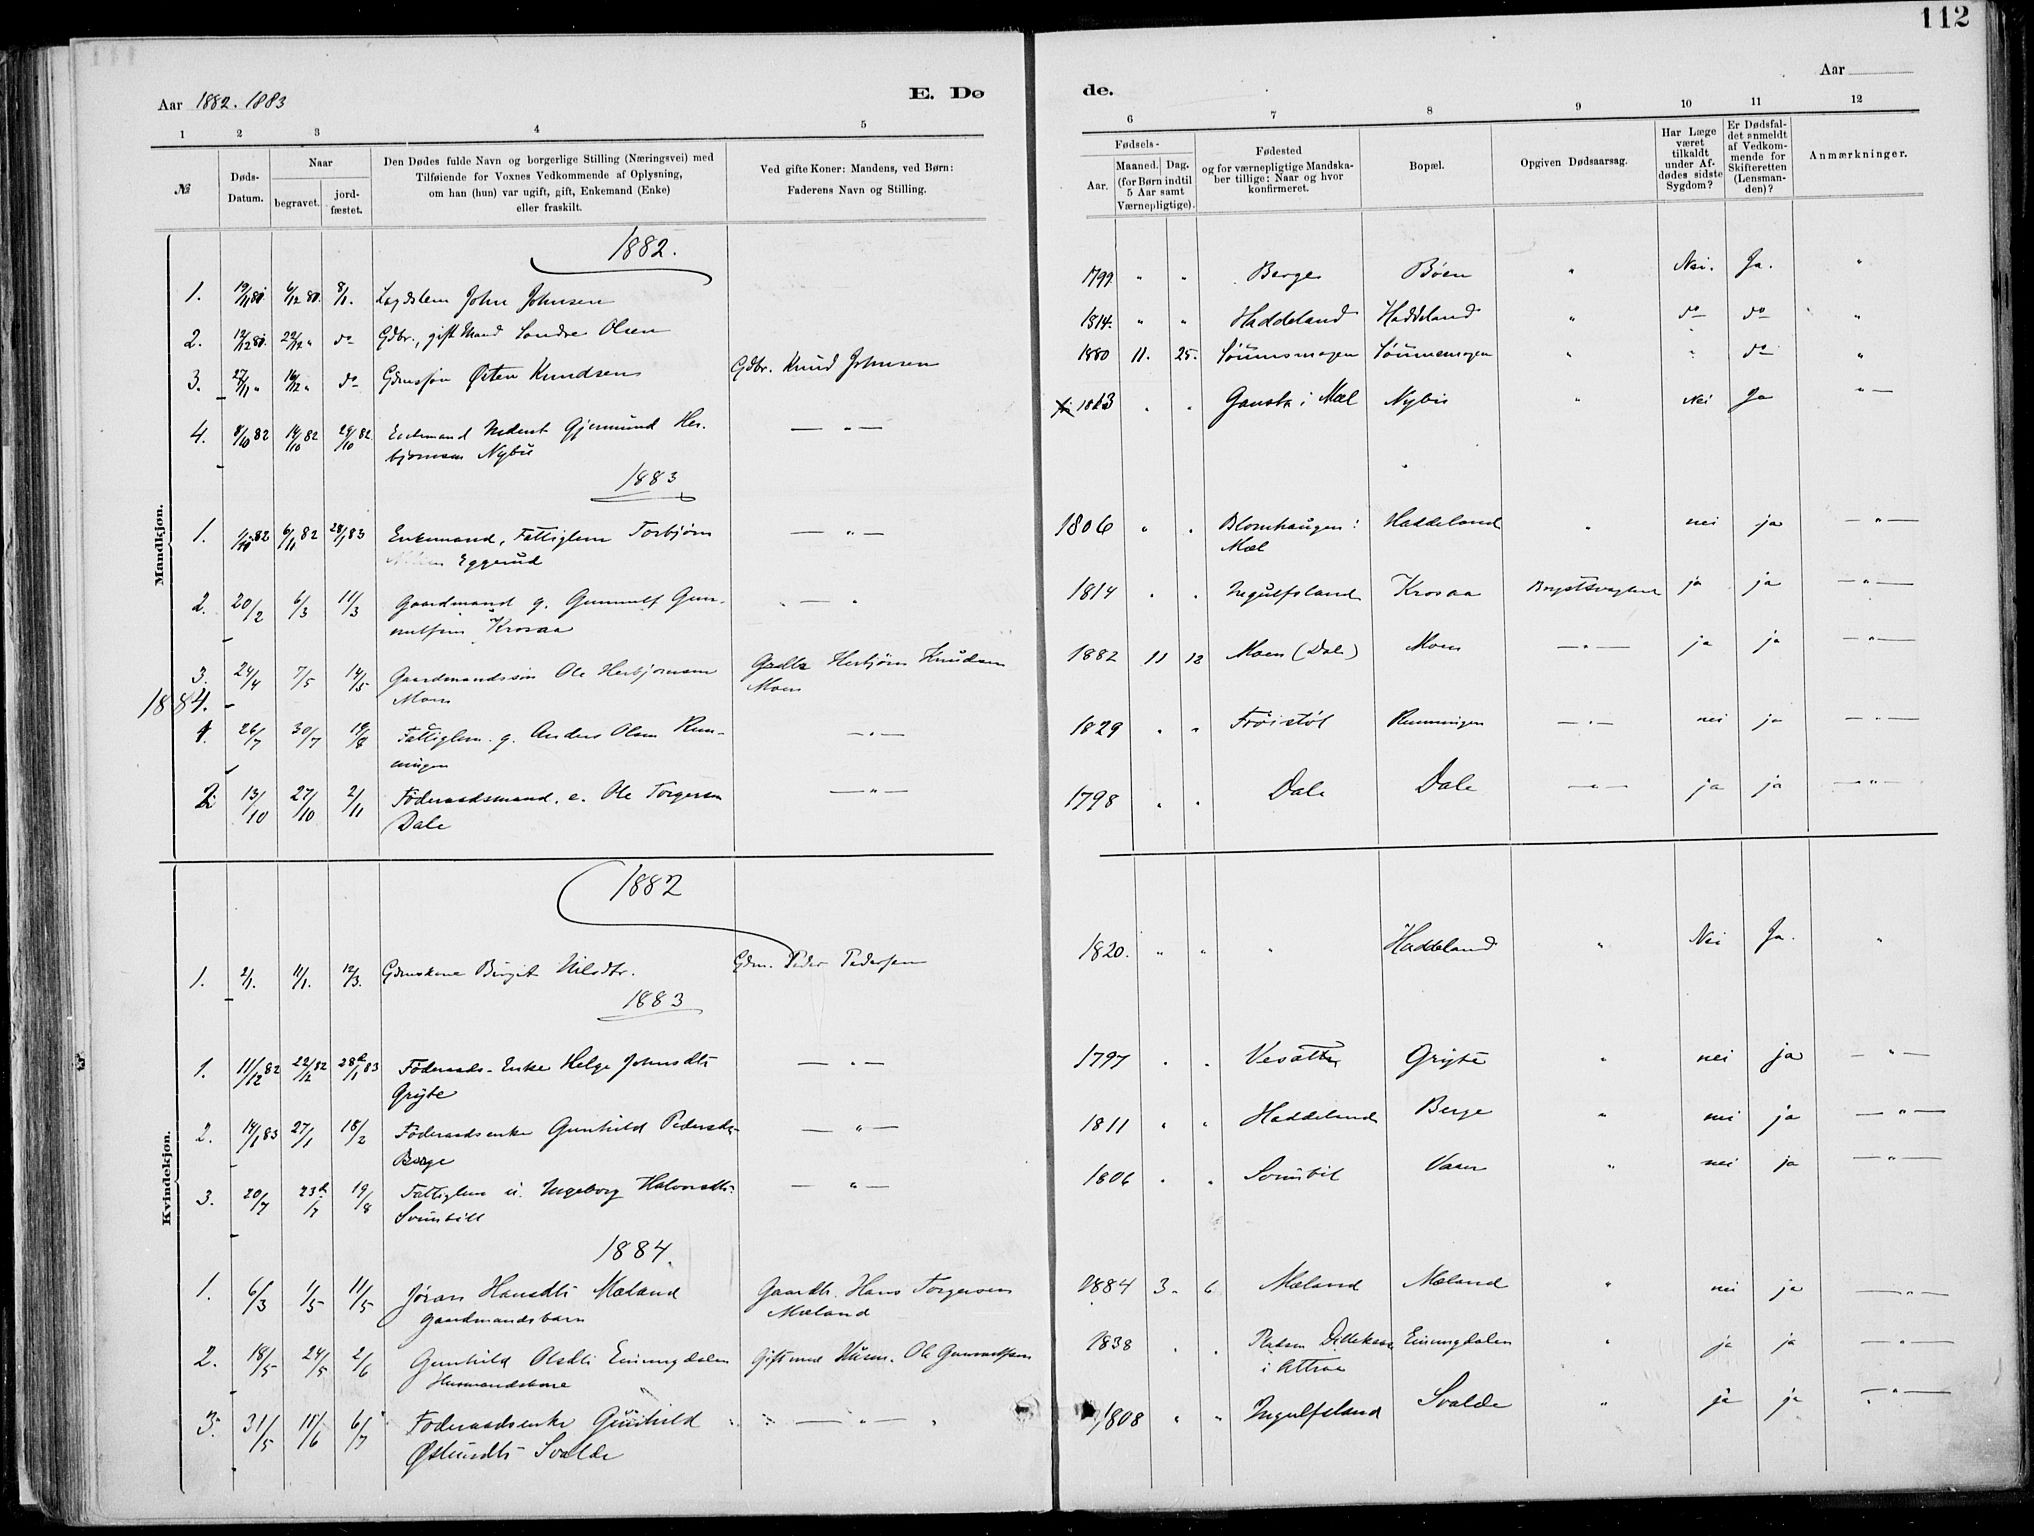 112
Aar 1882. 1883
E. Dø
de.
Aar
1 2 3 4 5
6 7 8 9 10 11 12
№
Døds-
Datum.
Naar
begravet.
jord-
fæstet.
Den Dødes fulde Navn og borgerlige Stilling (Næringsvei) med
Tilføiende for Voxnes Vedkommende af Oplysning,
om han (hun) var ugift, gift, Enkemand (Enke)
eller fraskilt.
Ved gifte Koner: Mandens, ved Børn:
Faderens Navn og Stilling.
Fødsels-
Aar.
Maaned. Dag.
(for Børn indtil
5 Aar samt
Værnepligtige).
Fødested
og for værnepligtige Mandska-
ber tillige: Naar og hvor
konfirmeret.
Bopæl.
Opgiven Dødsaarsag.
Har Læge
været
tilkaldt
under Af-
dødes sidste
Sygdom?
Er Dødsfal-
det anmeldt
af Vedkom-
mende for
Skifteretten
(Lensman-
den)?
Anmærkninger.
Mandkjøn.
1882.
1. 19/11 81. 6/12 81. 8/1. Lægdslem John Johnsen 1799. " " Berge Bøen " Nei. Ja. "
2. 12/12 81. 22/12 " do Gdbr., gift Mand Sondre Olsen 1814. " " Haddeland Haddeland " do do "
3. 27/11 " 16/12 " do Gdmssøn Østen Knudsen Gdbr. Knud Johnsen 1880 11. 25. " " do "
4. 8/10 82 14/10 82 29/10 82 Enkemand Gjermund Her-
bjørnsen Nybu — " — 1813 " " Gaustu i Mæl Nybu " Nei Ja " —
1883
1. 82 6/11 82 28/1 83 Enkemand, Fattiglem Torbjørn
Eggerud — " — 1806 " " Blomhaugen i
Mæl Haddeland " nei ja — " —
2. 20/2 6/3 11/3 Gaardmand g. Gunnulf Gun-
nulfsen Krosaa " — " 1814 " " Ingulfsland Krosaa ja ja — " —
3. 24/4 7/5 14/5 Gaardmandssøn Ole Herbjørnsen
Moen Gaardbr. Herbjørn Knudsen
Moen 1882 11 12 Moen (Dale) Moen — " — ja ja — " —
1884.
1. 26/7 30/7 19/8 Fattiglem g. Anders Olsen Rem-
mingen — " — 1829 " " Frøistøl Remmingen — " — nei ja — " —
2. 13/10 27/10 2/11 Føderaadsmand, e. Ole Torgersen
Dale — " — 1798 " " Dale Dale — " — ja ja — " —
Kvindekjøn.
1882
1. 2/1. 11/1. 12/3. Gdmskone Birgit Nilsdtr. Gdm. Peder Pedersen 1820. " " " Haddeland " Nei Ja. "
1883
1. 11/12 82 22/12 82 28/1 83 Føderaads-Enke Helge Johnsdtr
Gryte — " — 1797 " " Gryte " nei ja — " —
2. 14/1 83 27/1 18/2 Føderaadsenke Gunhild Pedersdtr
Berge — " — 1811 " " Haddeland Berge " nei ja — " —
3. 20/7 23/7 19/8 Fattiglem u. Ingeborg Halvorsdtr — " — 1806 " " Vaaer " nei ja — " —
1884.
1. 6/3 1/5 11/5 Jøran Hansdtr Mæland
Gaardmandsbarn Gaardbr. Hans Torgersen
Mæland 1884 3. 6 Mæland Mæland " nei ja — " —
2. 18/5 24/5 2/6 Gunhild Olsdtr Einungdalen
Husmandskone Gift med Husm. Ole Gunnulfsen 1838 " " Pladsen
i Attraa Einungdalen " ja ja — " —
3. 31/5 11/6 6/7 Føderaadsenke Gunhild
Østensdtr Svalde — " — 1808 " " Ingulfsland Svadde " ja ja " —